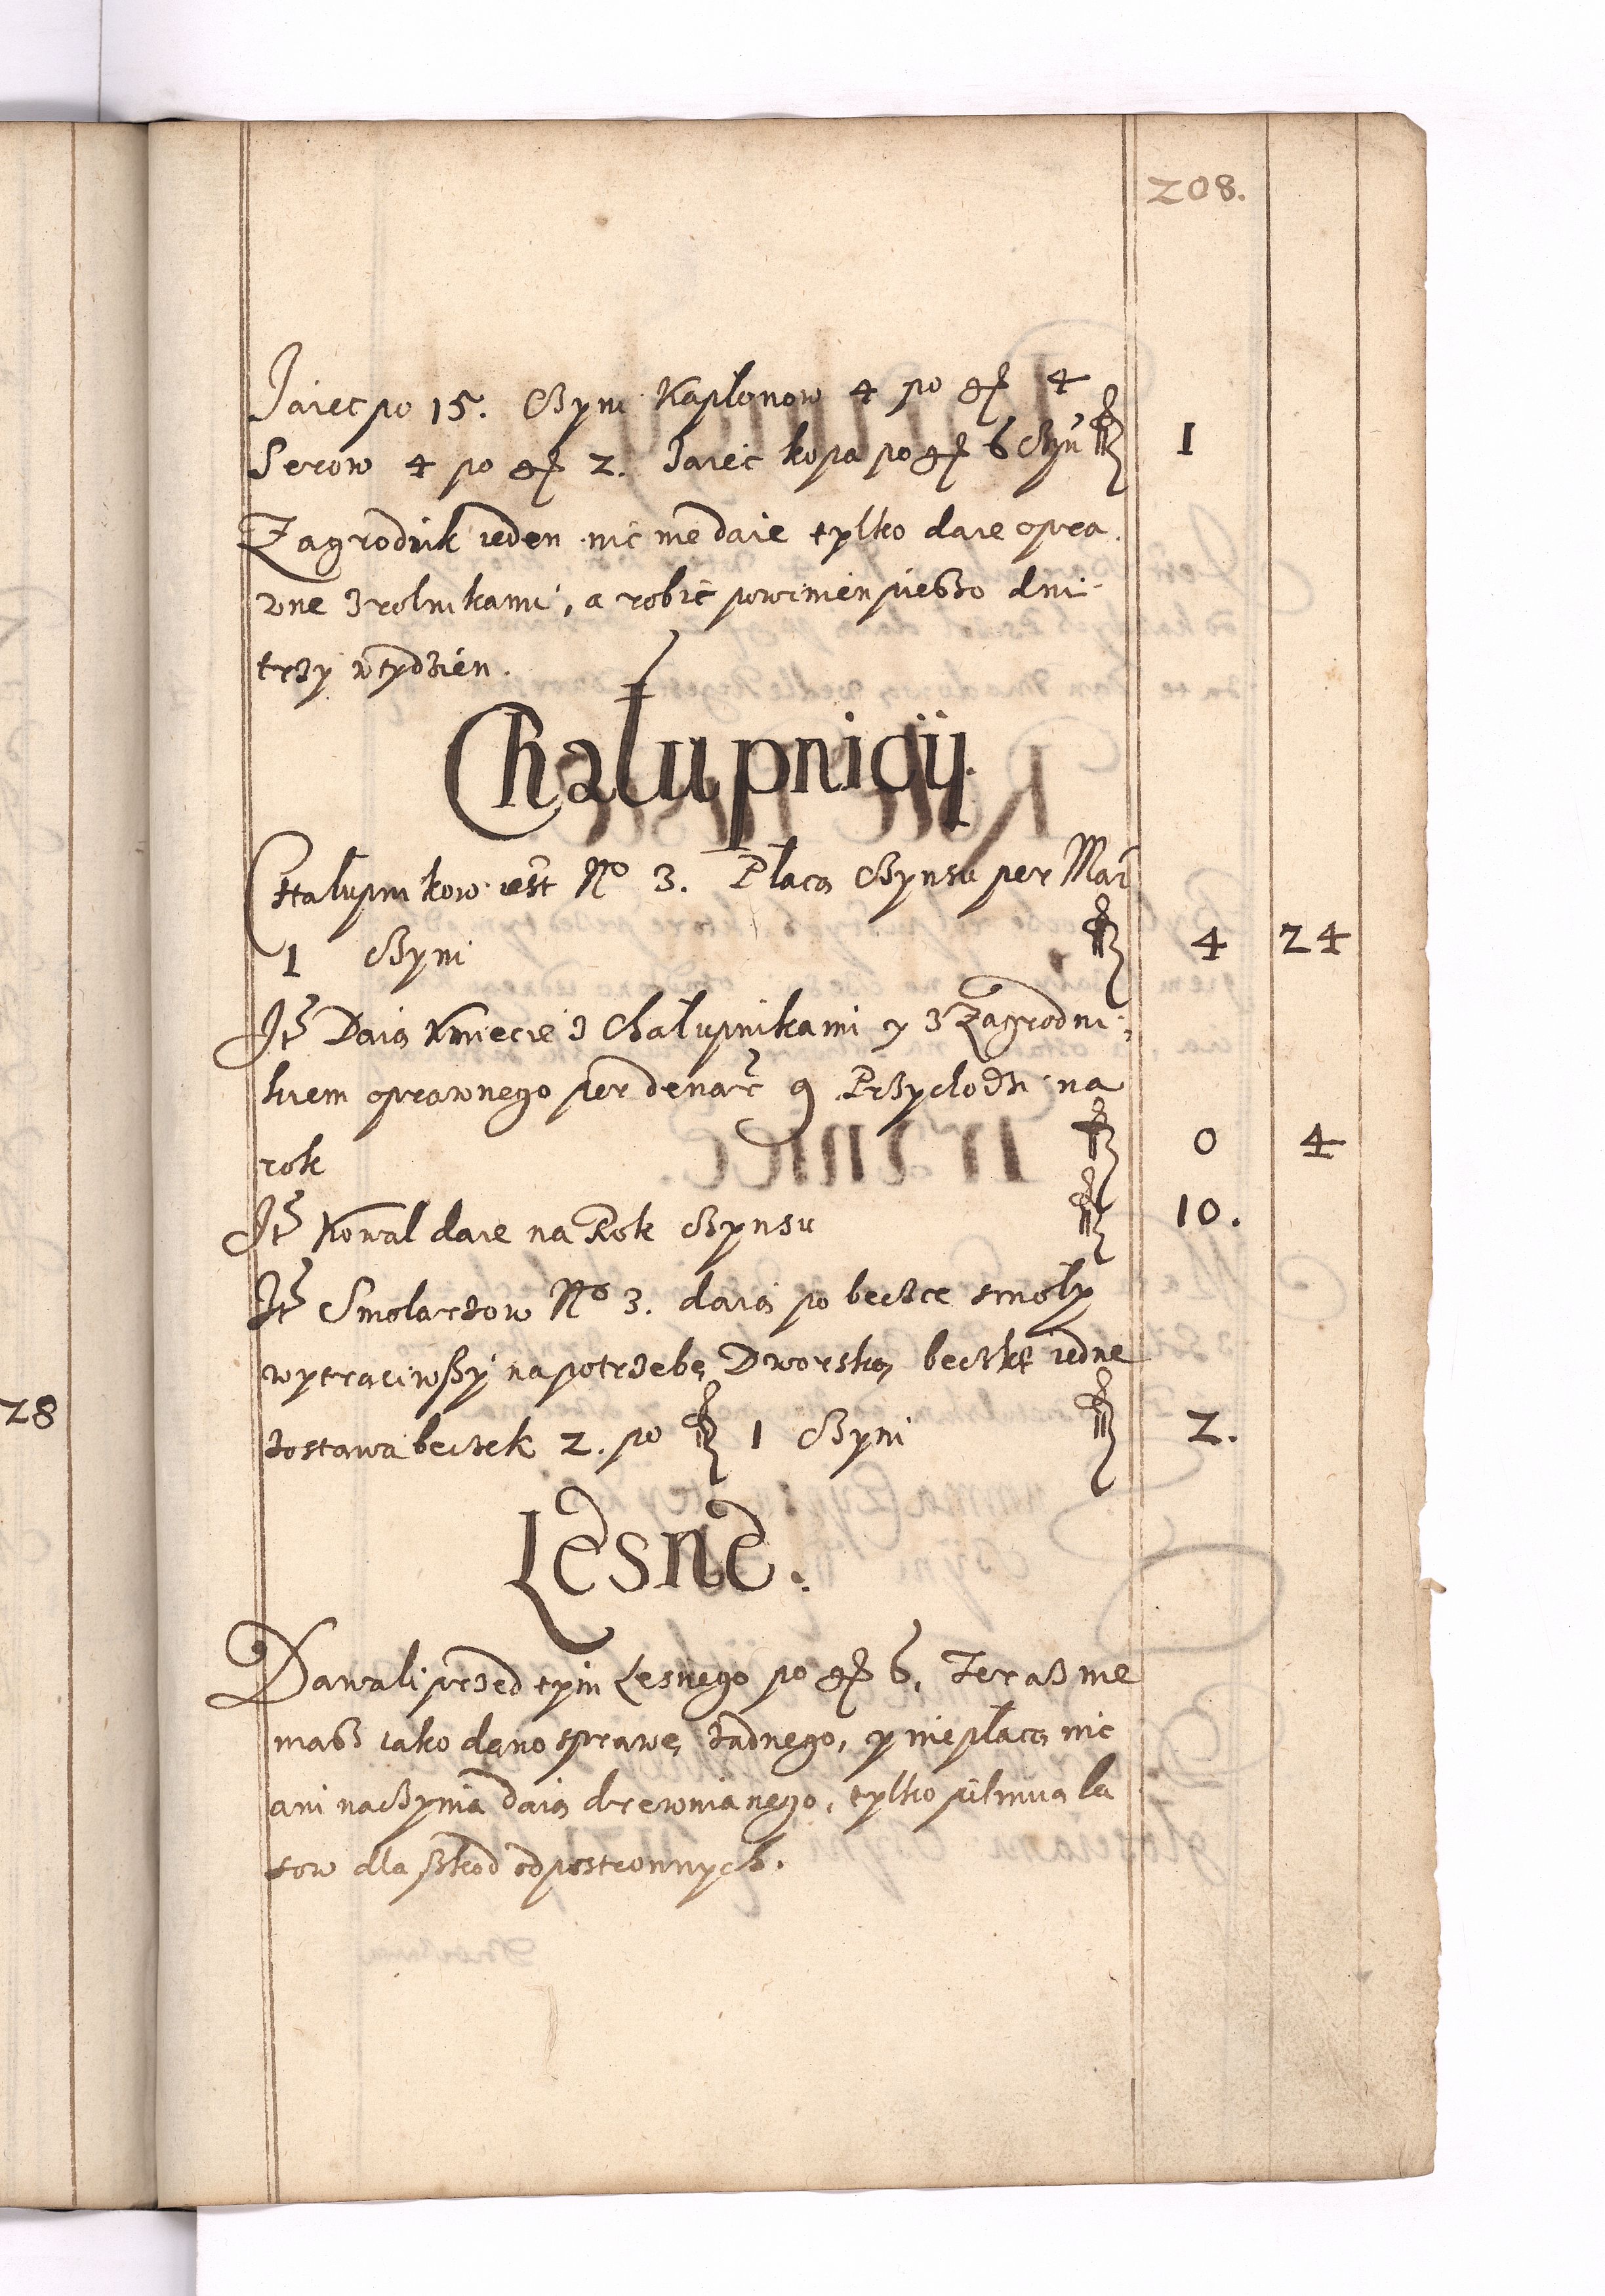 208.
Jaiec po 15. Czyni Kapłonow 4 po gr 4
Serow 4 po gr 2. Jaiec kopa po gr 6 Czyni fl 1
Zagrodnik ieden nic nie daie tylko daie opra
wne z rolnikami, a robić powinien pieszo dni
trzy w tydzień.
Chałupnicÿ.
Chałupnikow iest No 3. Płacą Czynszu per Mar
1 Czyni fl 4 24
Jt Daią Kmiecie z Chałupnikami y z Zagrodni:
kiem oprawnego per denar 9 Przychodzi na
rok fl 0 4
Jt Kowal daie na Rok Czynszu fl 10.
Jt Smolarzow No 3. daią po beczce smoły
wytrąciwszy na potrzebę Dworską beczkę iednę
zostawa beczek 2. po fl 1 Czyni fl 2.
Lesne.
Dawali przed tym Lesnego po gr 6. Teraz nie
masz iako dano sprawę żadnego, y nie płacą nic
ani naczynia daią drewnianego, tylko pilnuią la
sow dla szkod odpostronnych.
28